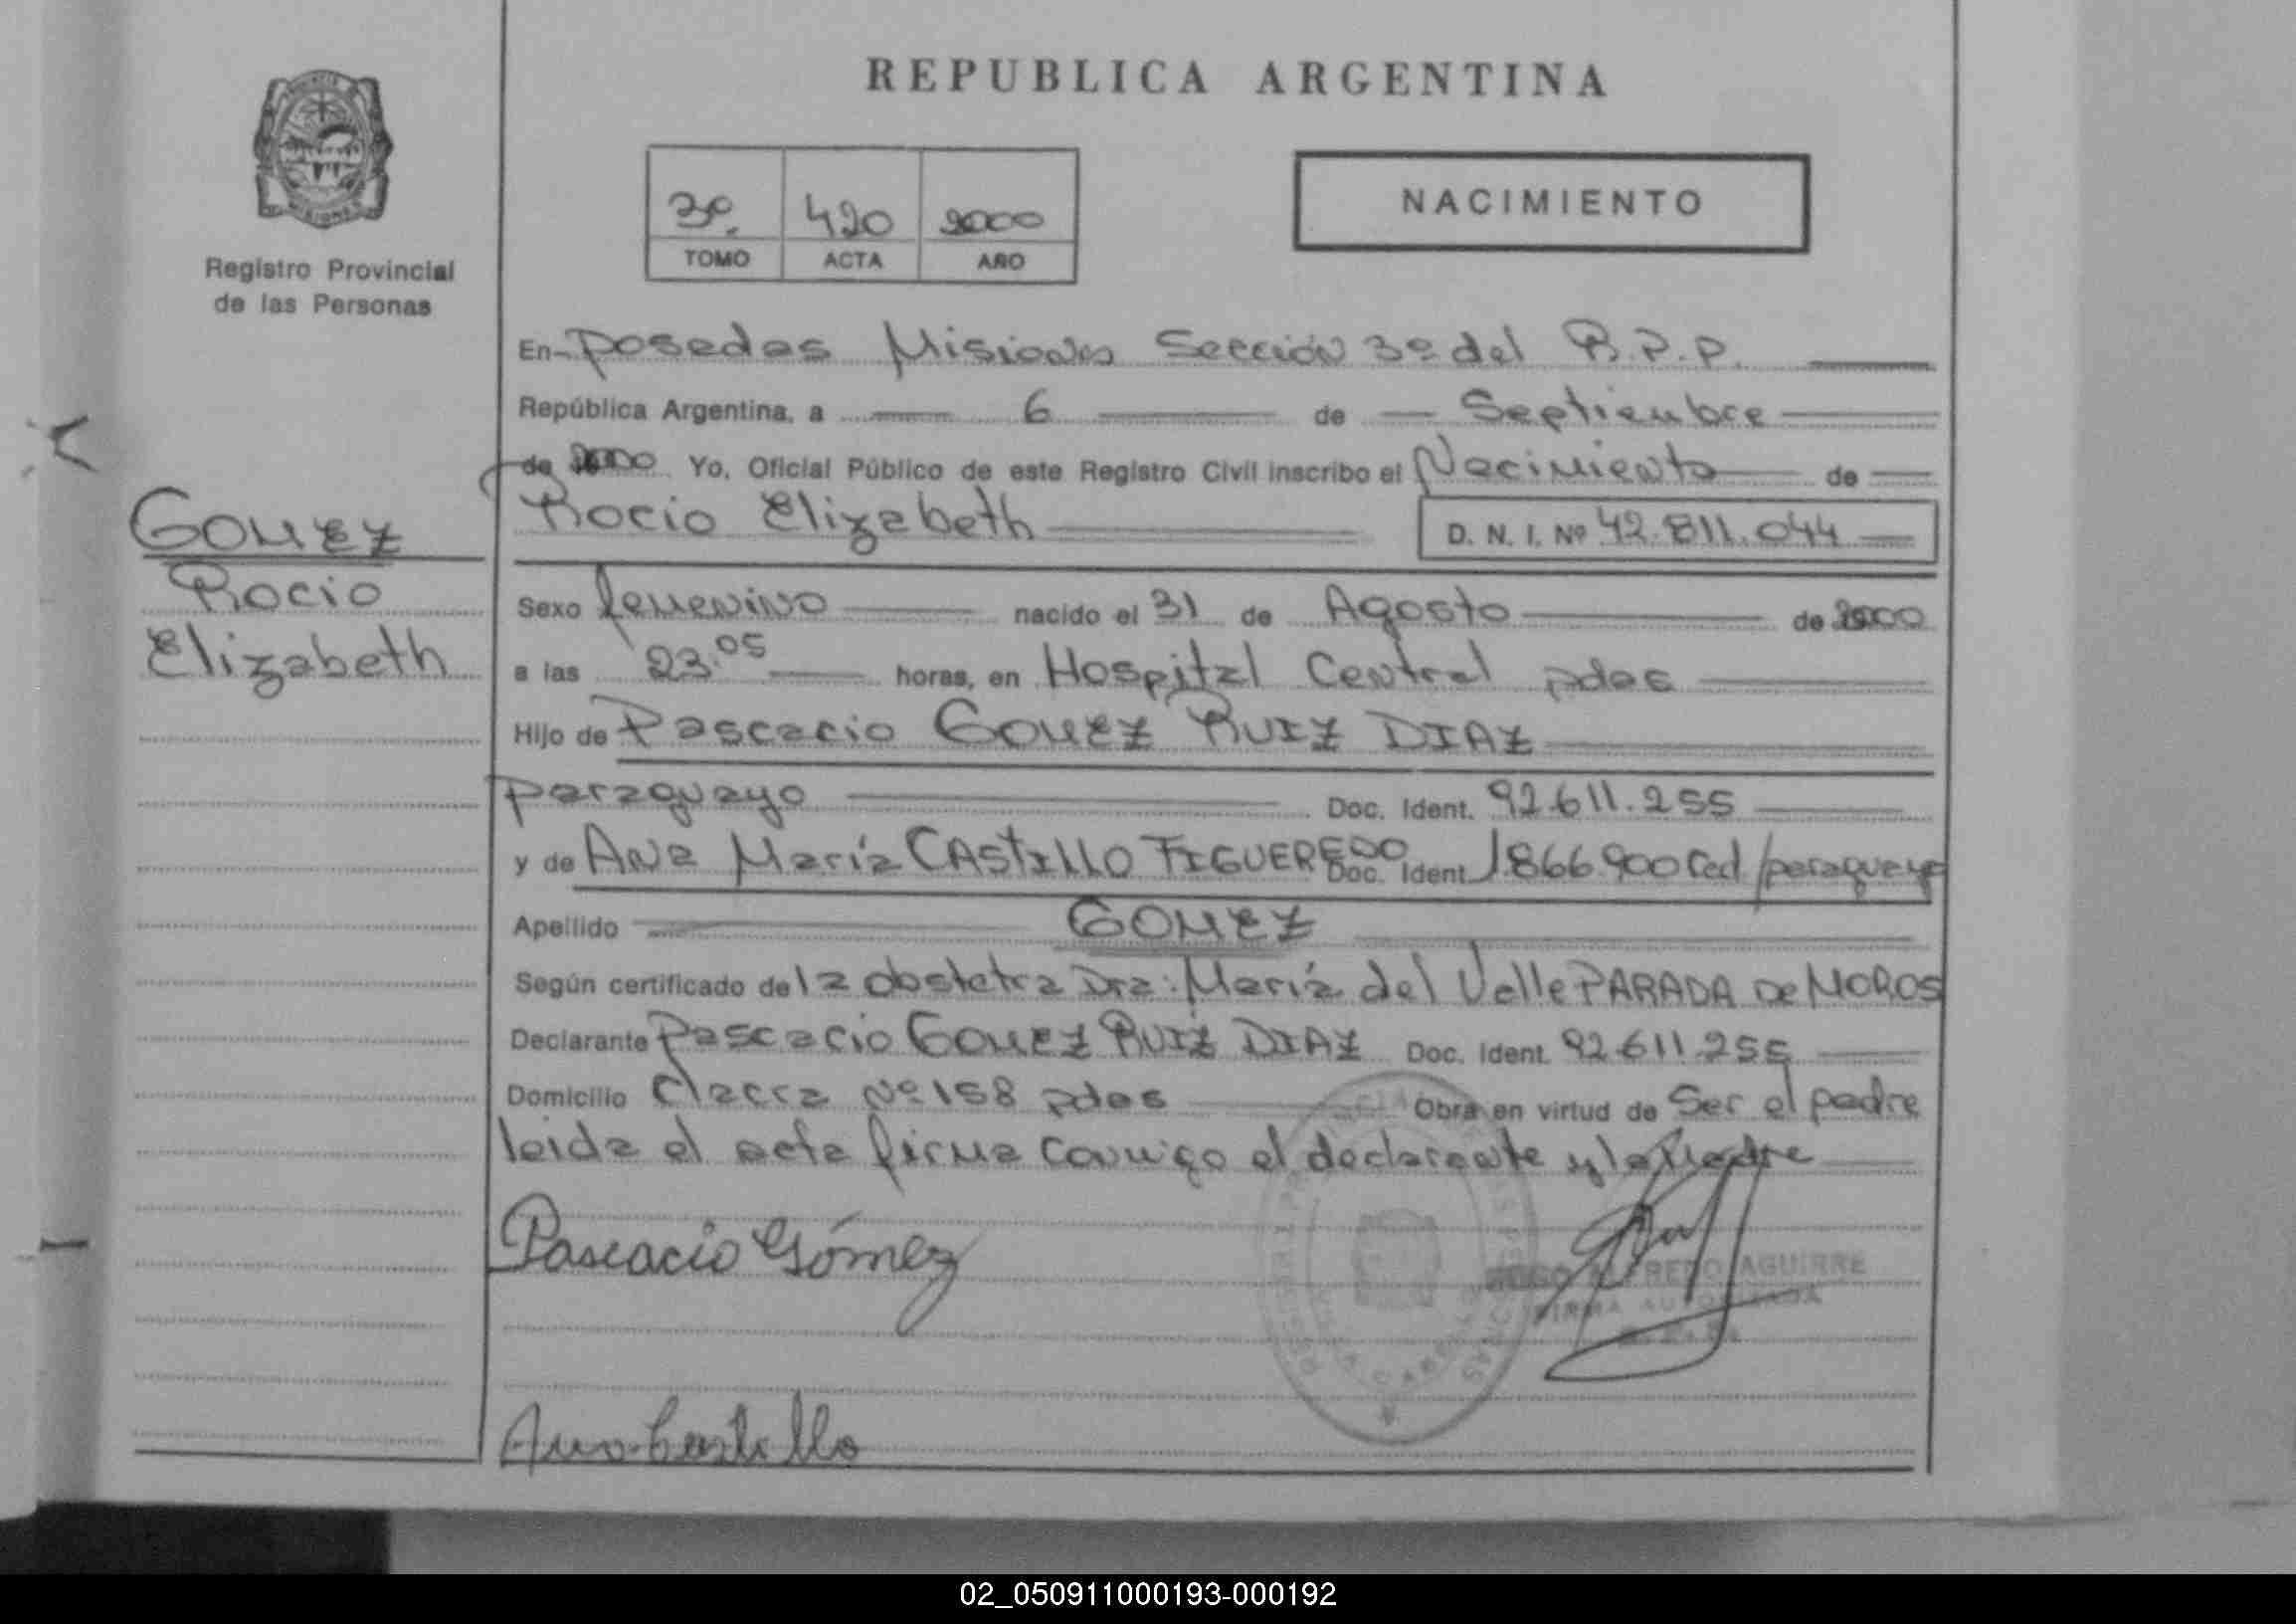 REPUBLICA ARGENTINA
PROVINCIA
MISIONES
Registro Provincial
de las Personas
3º. 420 2000
TOMO ACTA AÑO
NACIMIENTO
En Posadas Misiones Sección 3º del R.P.P.
República Argentina, a 6 de Septiembre
de 2000 Yo, Oficial Público de este Registro Civil inscribo el Nacimiento de
Rocio Elizabeth D. N. I. Nº 42.811.044
GOMEZ
Rocio
Elizabeth
Sexo femenino nacido el 31 de Agosto de 2000
a las 23.05 horas, en Hospital Central pdas
Hijo de Pascacio GOMEZ RUIZ DIAZ
paraguayo Doc. Ident. 92.611.255
y de Ana María CASTILLO FIGUEREDO Doc. Ident 1866.900 Ced/paraguaya
Apellido GOMEZ
Según certificado de la obstetra Dra: María del Valle PARADA De MOROS
Declarante Pascacio GOMEZ RUIZ DIAZ Doc. Ident. 92.611.255
Domicilio Chacra Nº 158 pdas Obra en virtud de Ser el padre
leida el acta firma conmigo el declarante y la Madre
Pascacio Gómez
HUGO ALFREDO AGUIRRE
FIRMA AUTORIZADA
Ana Castillo
02_050911000193-000192